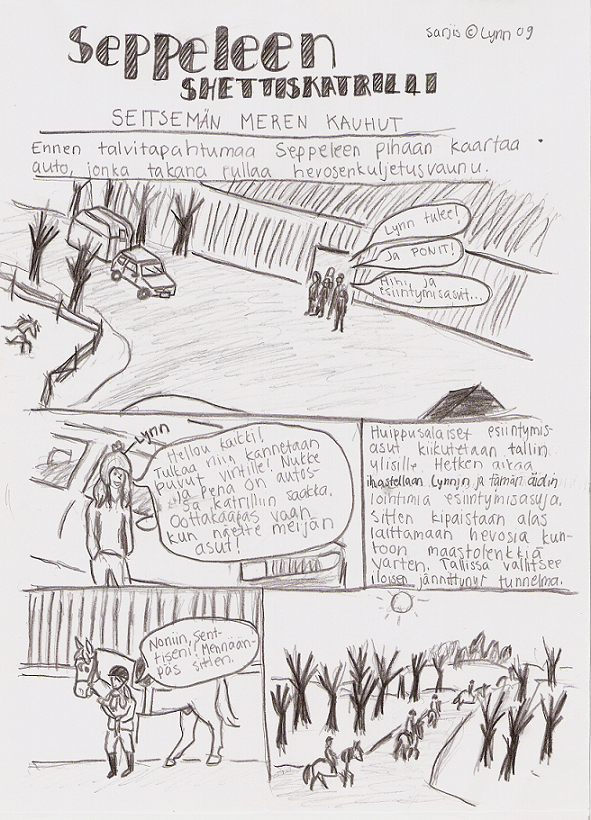 sarjis © Lynn 09
Seppeleen
SHETTISKATRILLI
SEITSEMÄN MEREN KAUHUT
Ennen talvitapahtumaa Seppeleen pihaan kaartaa
auto, jonka takana rullaa hevosenkuljetusvaunu.
Lynn tulee!
Ja PONIT!
Hihi, ja
esiintymisasut...
Lynn
Hellou kaikki!
Tulkaa niin kannetaan
puvut vintille! Nukke
ja Pena on autos-
sa katrilliin saakka.
Oottakaapas vaan
kun näette meijän
asut!
Huippusalaiset esiintymis-
asut kiikutetaan tallin
ylisille. Hetken aikaa
ihastellaan Lynnin ja tämän äidin
loihtimia esiintymisasuja.
Sitten kipaistaan alas
laittamaan hevosia kun-
toon maastolenkkiä
varten. Tallissa vallitsee
iloisen jännittynyt tunnelma.
Noniin, Sent-
tiseni! Mennään-
päs sitten.